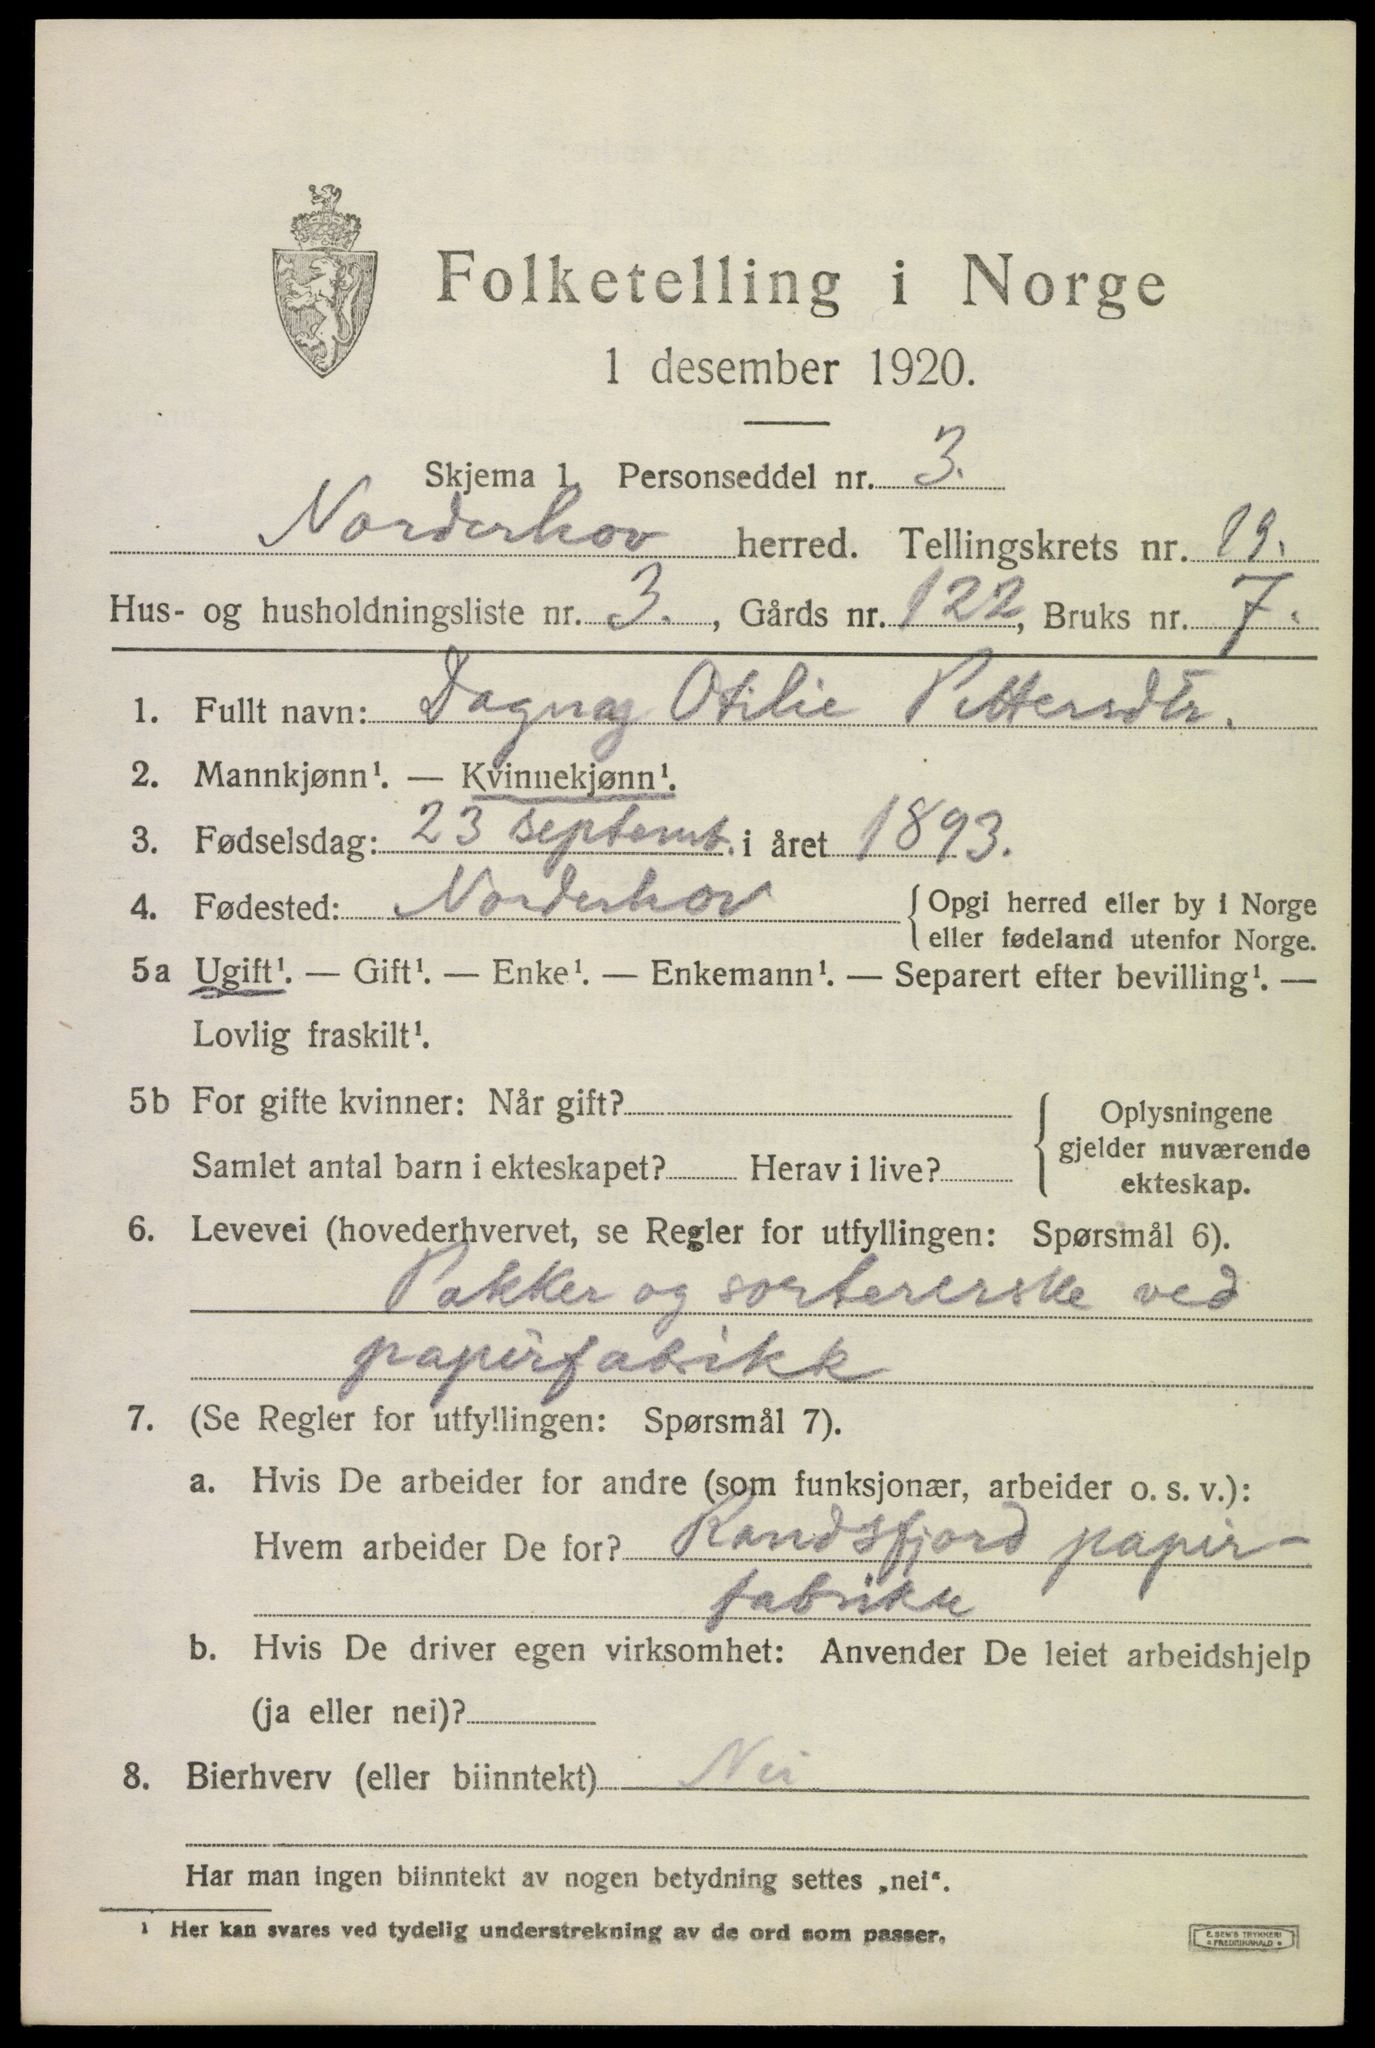 Folketelling i Norge
1 desember 1920.
Skjema 1. Personseddel nr. 3.
Norderhov herred. Tellingskrets nr. 19.
Hus- og husholdningsliste nr. 3., Gårds nr. 122, Bruks nr. 7.
1. Fullt navn: Dagny Otilie Pettersdtr.
2. Mannkjønn¹. — Kvinnekjønn¹.
3. Fødselsdag: 23 septemb. i året 1893.
4. Fødested: Norderhov { Opgi herred eller by i Norge
eller fødeland utenfor Norge.
5a Ugift¹. — Gift¹. — Enke¹. — Enkemann¹. — Separert efter bevilling¹. —
Lovlig fraskilt¹.
5b For gifte kvinner: Når gift?
Samlet antal barn i ekteskapet? Herav i live?
{ Oplysningene
gjelder nuværende
ekteskap.
6. Levevei (hovederhvervet, se Regler for utfyllingen: Spørsmål 6).
Pakker og sortererske ved
papirfabrikk
7. (Se Regler for utfyllingen: Spørsmål 7).
a. Hvis De arbeider for andre (som funksjonær, arbeider o. s. v.):
Hvem arbeider De for? Randsfjord papir-
fabrikk
b. Hvis De driver egen virksomhet: Anvender De leiet arbeidshjelp
(ja eller nei)?
8. Bierhverv (eller biinntekt) Nei
Har man ingen biinntekt av nogen betydning settes „nei“.
¹ Her kan svares ved tydelig understrekning av de ord som passer.
E. SEM'S TRYKKERI
FREDRIKSHALD